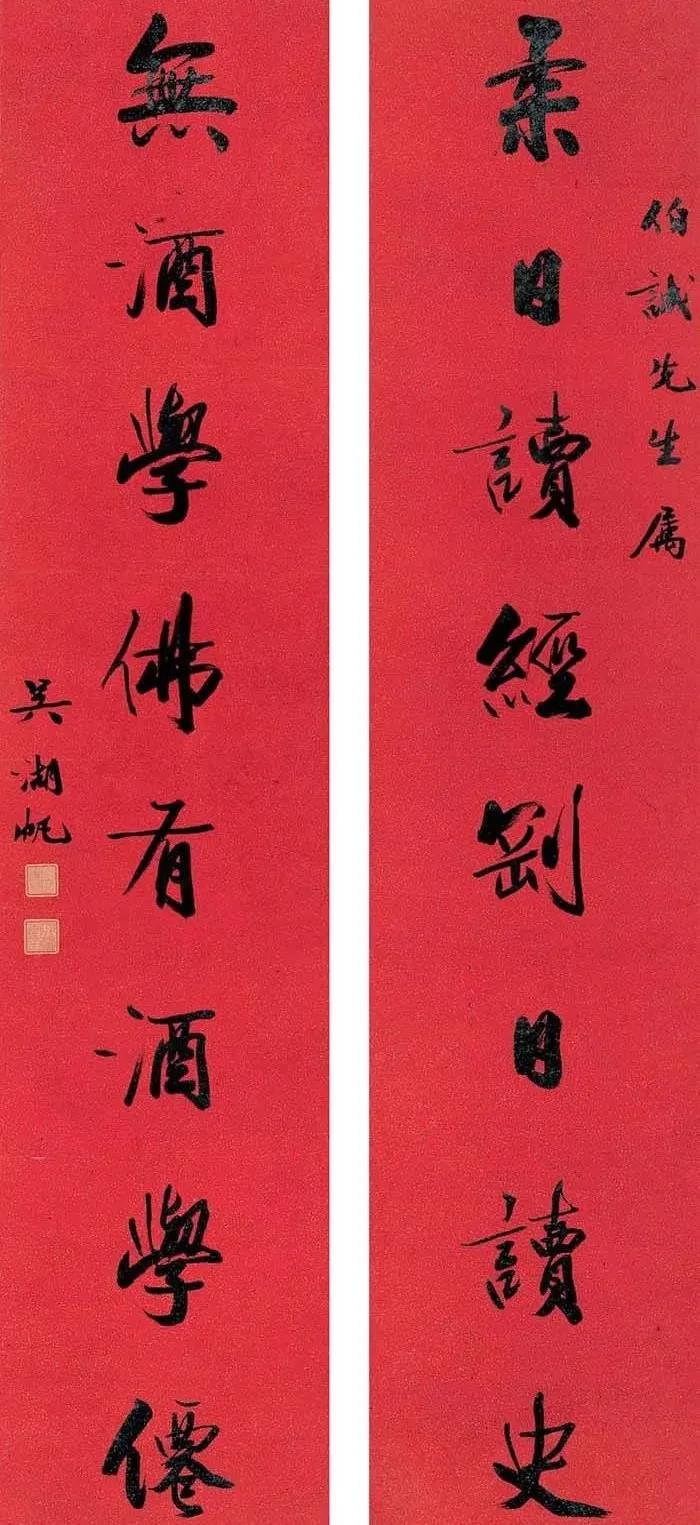 伯誠先生属
柔日讀經剛日讀史
無酒學佛有酒學僊
吳湖帆